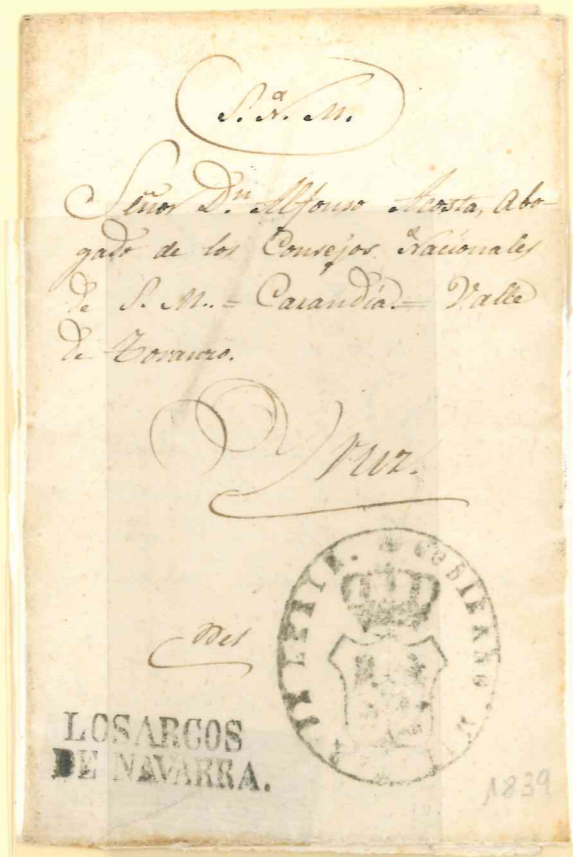 S. N. M.
Señor Dn. Alfonso Acosta, Abo-
gado de los Consejos Nacionales
de S. M. = Carandía = Valle
de Toranzo.
Yruz.
Del
LOS ARCOS
DE NAVARRA.
1839